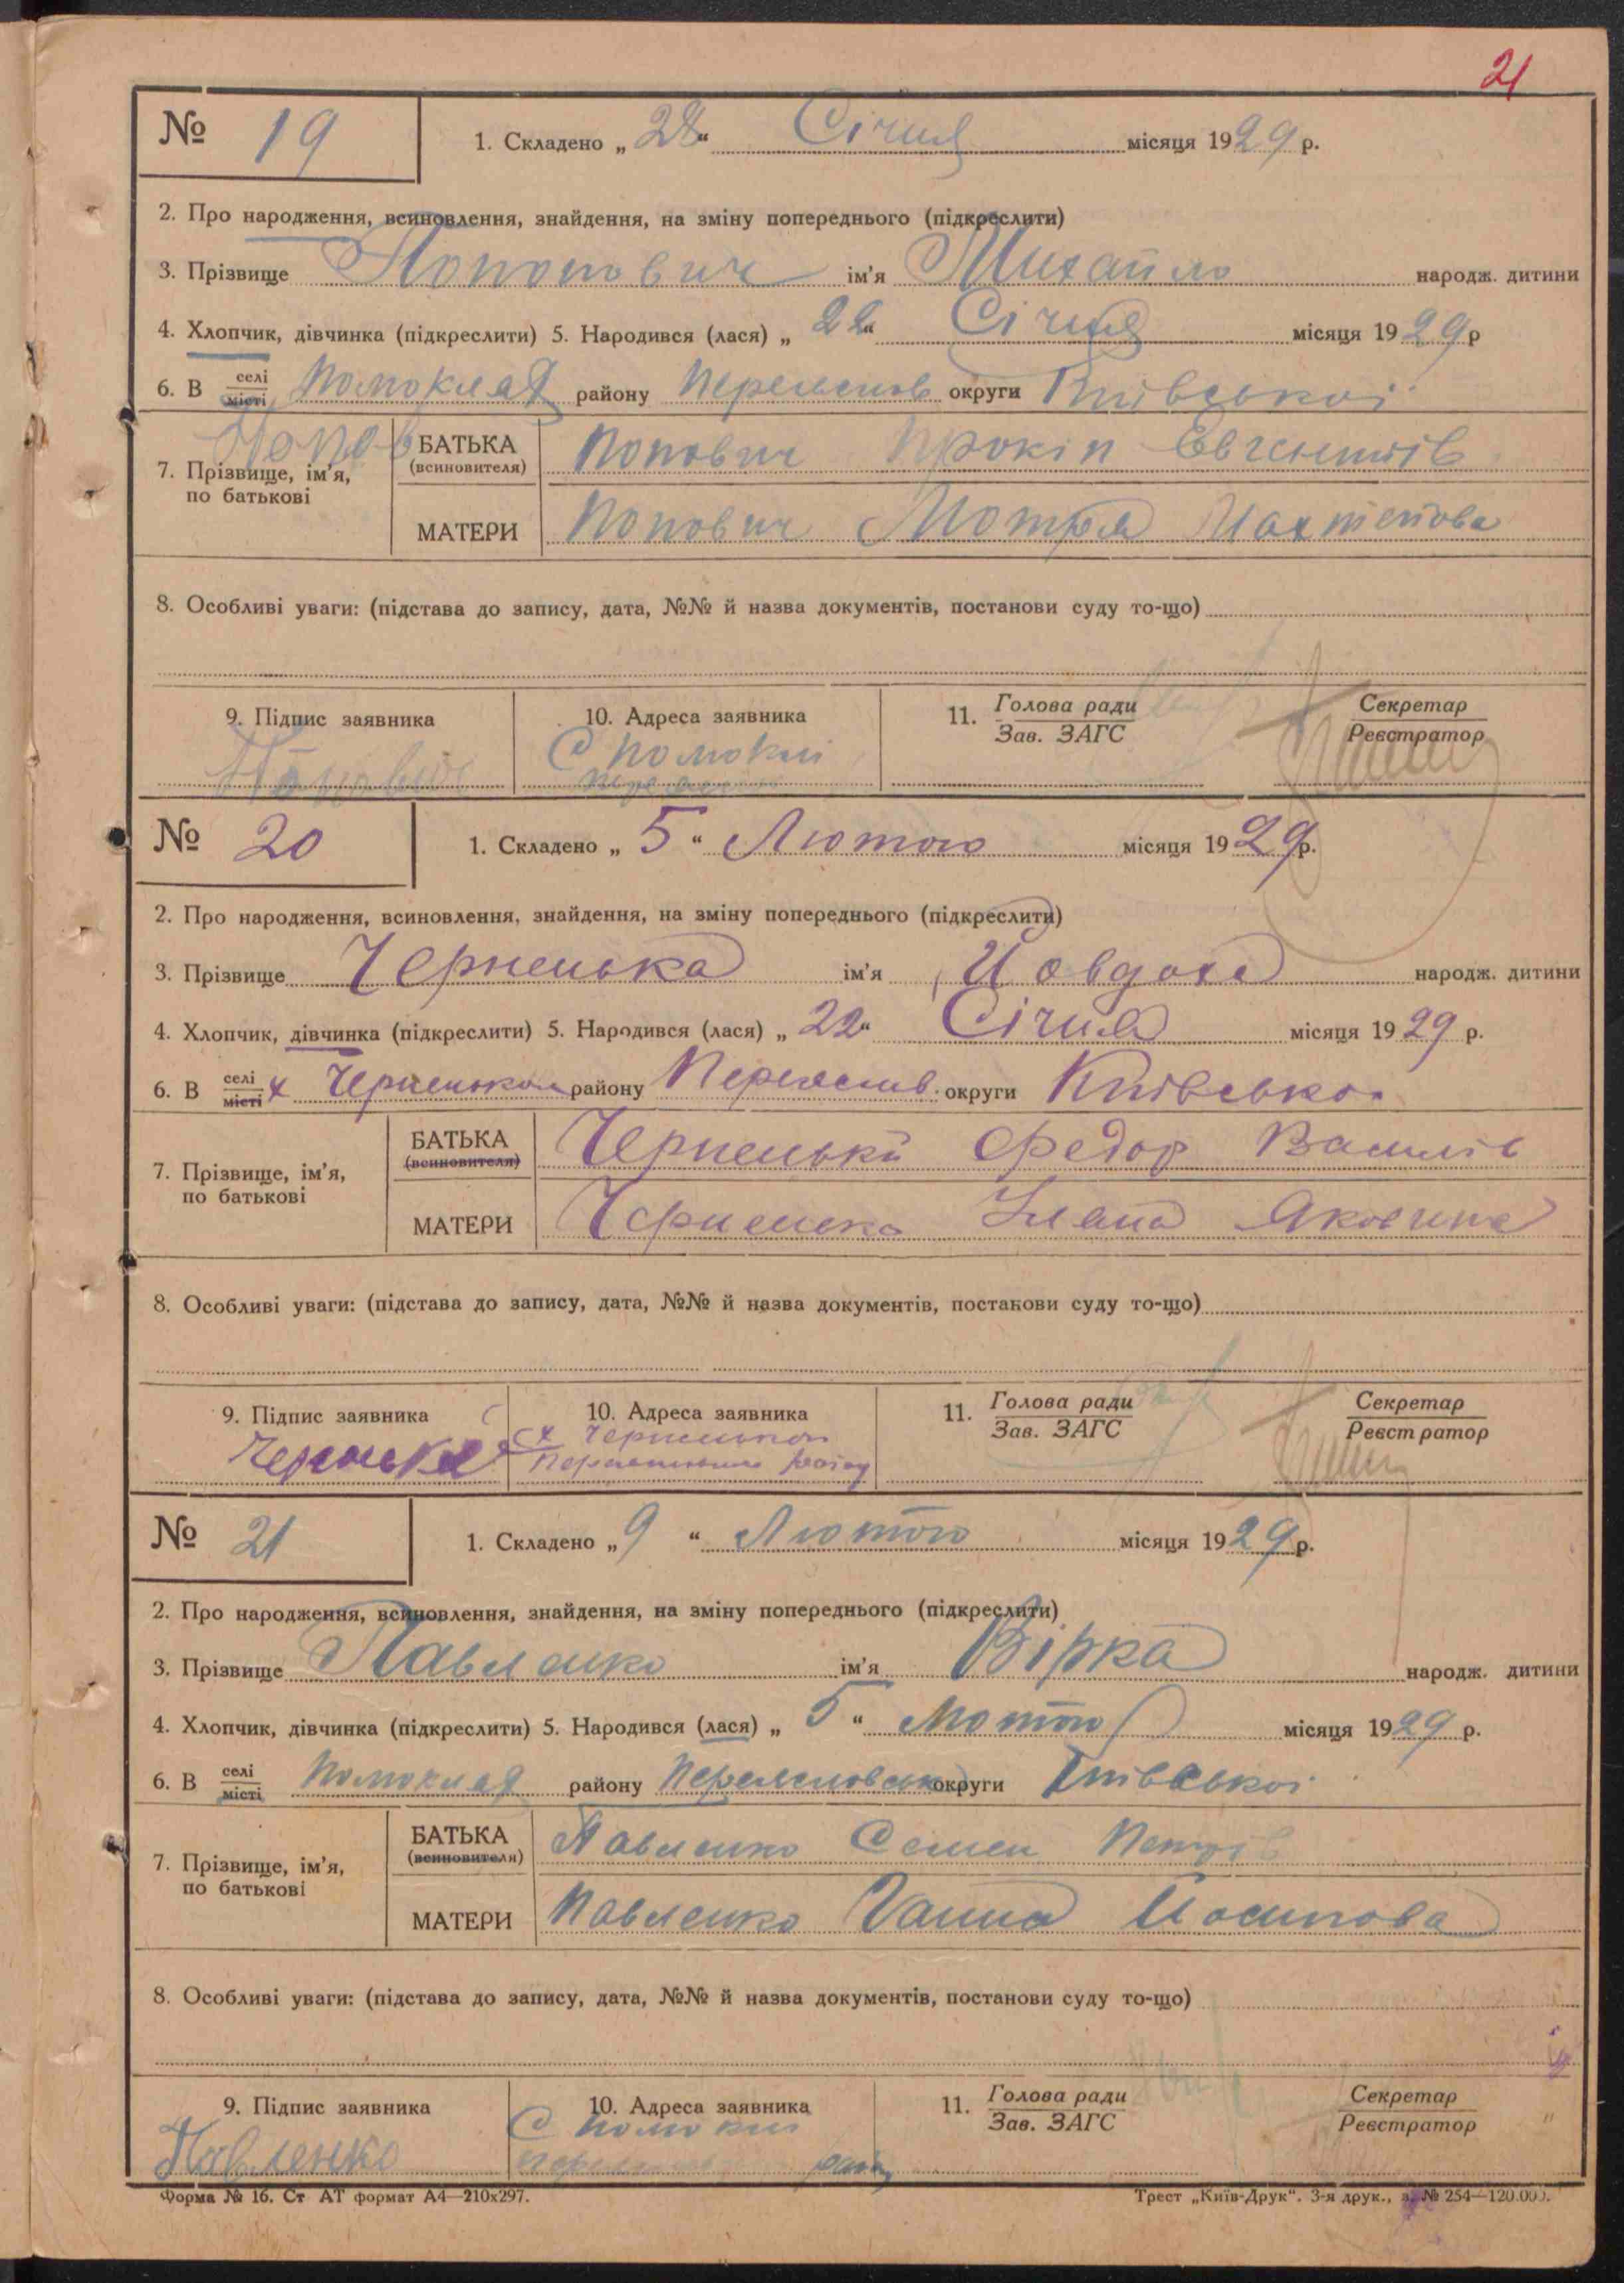 21
№ 19
1. Складено „28“ Січня місяця 1929 р.
2. Про народження, всиновлення, знайдення, на зміну попереднього (підкреслити)
3. Прізвище Попович ім'я Михайло народж. дитини
4. Хлопчик, дівчинка (підкреслити) 5. Народився (лася) „22“ Січня місяця 1929 р
6. В селі місті Помоклях району Переяслов округи Київської
7. Прізвище, ім'я, по батькові
БАТЬКА (всиновителя) Попович Прокіп
МАТЕРИ Попович Мотря
8. Особливі уваги: (підстава до запису, дата, №№ й назва документів, постанови суду то-що)
9. Підпис заявника
10. Адреса заявника
11. Голова ради Зав. ЗАГС
Секретар Реєстратор
С Помоклі
№ 20
1. Складено „5“ Лютого місяця 1929 р.
2. Про народження, всиновлення, знайдення, на зміну попереднього (підкреслити)
3. Прізвище Черненька ім'я Йовдоха народж. дитини
4. Хлопчик, дівчинка (підкреслити) 5. Народився (лася) „22“ Січня місяця 1929 р.
6. В селі місті х Черненьком району Переяслів. округи Київсько
7. Прізвище, ім'я, по батькові
БАТЬКА (всиновителя) Черненьки Федор Василів
МАТЕРИ Уляна Яковина
8. Особливі уваги: (підстава до запису, дата, №№ й назва документів, постанови суду то-що)
9. Підпис заявника
10. Адреса заявника
11. Голова ради Зав. ЗАГС
Секретар Реєстратор
№ 21
1. Складено „9“ Лютого місяця 1929 р.
2. Про народження, всиновлення, знайдення, на зміну попереднього (підкреслити)
3. Прізвище Павленко ім'я Вірка народж. дитини
4. Хлопчик, дівчинка (підкреслити) 5. Народився (лася) „5“ Лютого місяця 1929 р.
6. В селі місті Помоклях району округи Київської
7. Прізвище, ім'я, по батькові
БАТЬКА (всиновителя) Павленко Семен Петрів
МАТЕРИ Павленко Ганна Йосипова
8. Особливі уваги: (підстава до запису, дата, №№ й назва документів, постанови суду то-що)
9. Підпис заявника
10. Адреса заявника
11. Голова ради Зав. ЗАГС
Секретар Реєстратор
Павленко
С Помокли
Форма № 16. Ст АТ формат А4—210х297.
Трест „Київ-Друк“. 3-я друк., з. № 254—120.000.